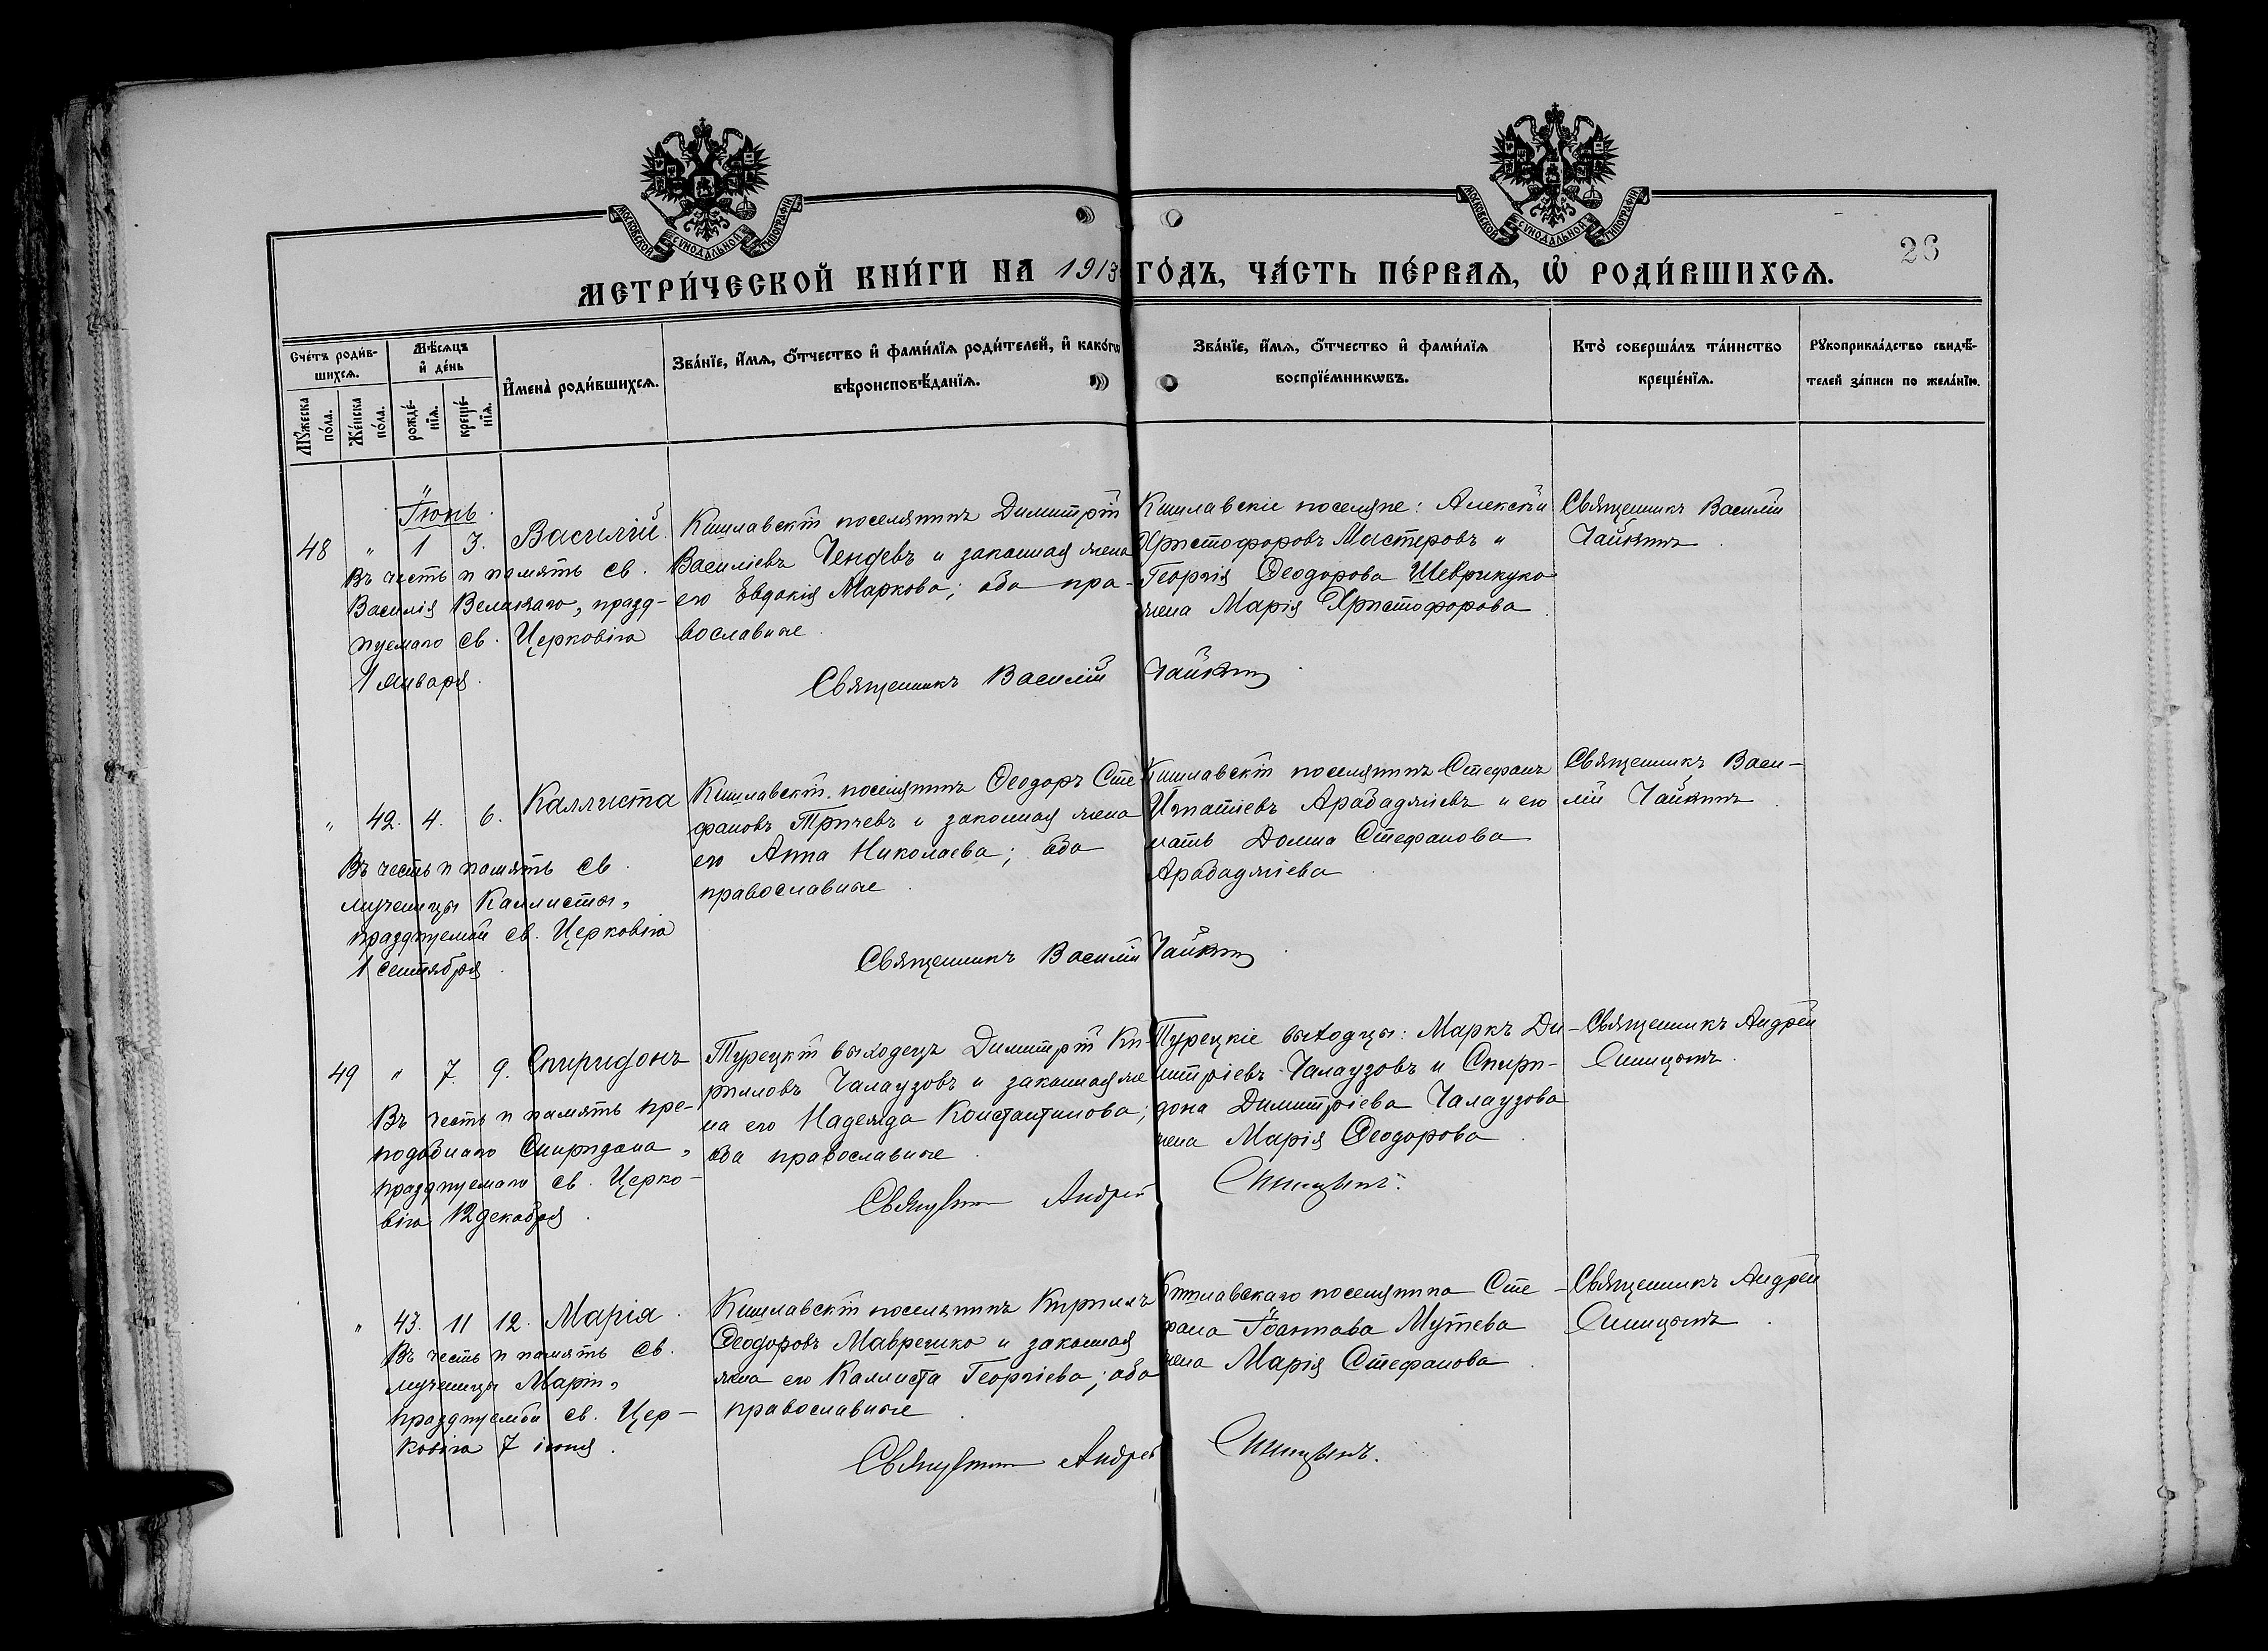 МОСКОВСКОЙ СУНОДАЛЬНОЙ ТИПОГРАФІИ
МОСКОВСКОЙ СУНОДАЛЬНОЙ ТИПОГРАФІИ
26
МЕТРИ́ЧЕСКОЙ КНИ́ГИ НА 1913 ГО́ДЪ, ЧА́СТЬ ПЕ́РВАѦ, Ѡ҆ РОДИ́ВШИХСѦ.
Сче́тъ роди́в-
шихсѧ.
Мꙋ́жеска по́ла.
Же́нска по́ла.
Мѣ́сѧцъ
и҆ де́нь
рожде́-
нїѧ.
креще́-
нїѧ.
И҆мена̀ роди́вшихсѧ.
Зва́нїе, и҆́мѧ, ѻ҆́тчество и҆ фами́лїѧ роди́телей, и҆ како́гѡ
вѣроисповѣ́данїѧ.
Зва́нїе, и҆́мѧ, ѻ҆́тчество и҆ фами́лїѧ
воспрїе́мникѡвъ.
Кто̀ соверша́лъ та́инство
креще́нїѧ.
Рꙋкоприкла́дство свидѣ́-
телей за́писи по жела́нїю.
Іюнь.
48 " 1 3. Василій.
Въ честь и память св.
Василія Великаго, празд-
нуемаго св. Церковію
1 января.
Кишлавскій поселянинъ Димитрій
Василіевъ Чендевъ и законная жена
его Евдокія Маркова; оба пра-
вославные.
Кишлавскіе поселяне: Алексѣй
Христофоровъ Мастеровъ и
Георгія Ѳеодорова Шеврикуко
жена Марія Христофорова
Священникъ Василій
Чайкинъ.
Священникъ Василій Чайкинъ.
" 42. 4. 6. Каллиста
Въ честь и память св.
мученицы Каллисты,
празднуемой св. Церковію
1 сентября.
Кишлавскій поселянинъ Ѳеодоръ Сте
фановъ Тричевъ и законная жена
его Анна Николаева; оба
православные.
Кишлавскій поселянинъ Стефанъ
Игнатіевъ Арабаджіевъ и его
мать Домна Стефанова
Арабаджіева.
Священникъ Васи-
лій Чайкинъ.
Священникъ Василій Чайкинъ.
49 " 7. 9. Спиридонъ
Въ честь и память пре-
подобнаго Спиридона,
празднуемаго св. Церко-
вію 12 декабря.
Турецкій выходецъ Димитрій Ки-
рилловъ Чалаузовъ и законная же
на его Надежда Константинова;
оба православные.
Турецкіе выходцы: Маркъ Ди-
митріевъ Чалаузовъ и Спири-
дона Димитріева Чалаузова
жена Марія Ѳеодорова.
Священникъ Андрей
Синицынъ.
Священникъ Андрей Синицынъ.
" 43. 11 12. Марія.
Въ честь и память св.
мученицы Маріи,
празднуемой св. Цер-
ковію 7 іюня.
Кишлавскій поселянинъ Кириллъ
Ѳеодоровъ Маврешко и законная
жена его Каллиста Георгіева; оба
православные.
Кишлавскаго поселянина Сте-
фана Іоаннова Мутева
жена Марія Стефанова.
Священникъ Андрей
Синицынъ.
Священникъ Андрей Синицынъ.